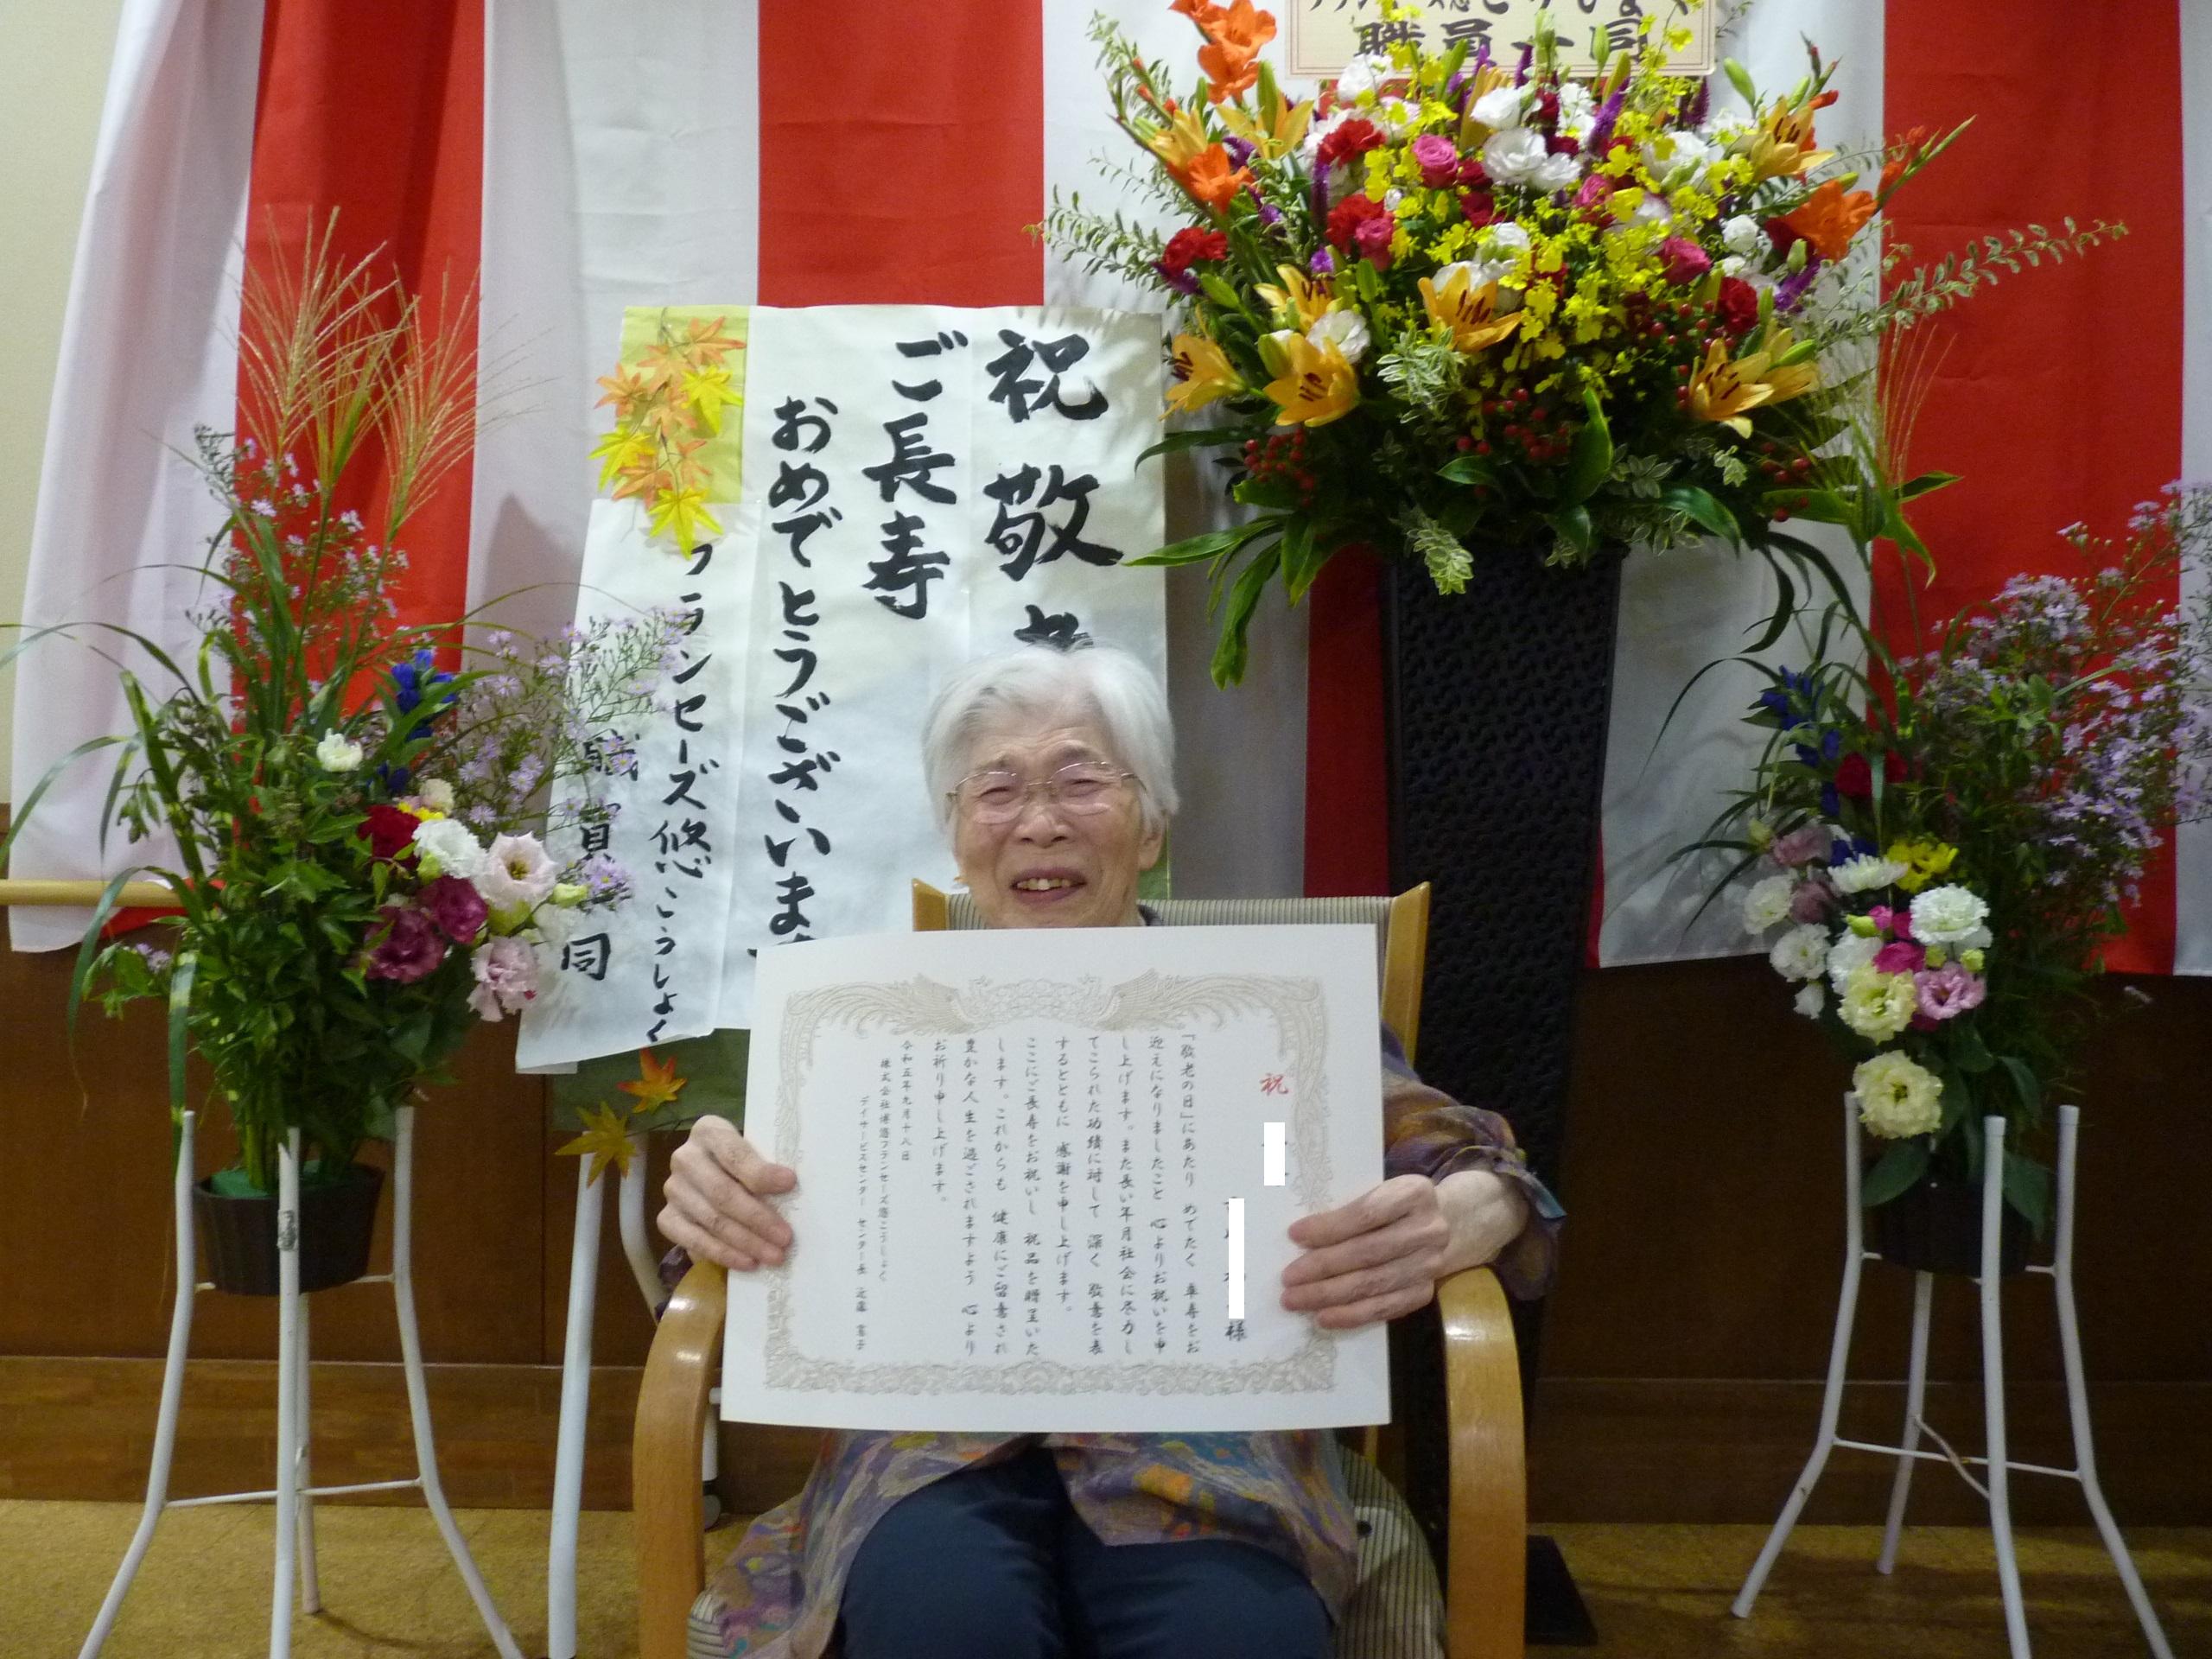 職員一同
祝 敬
ご長寿
おめでとうございま
フランセーズ悠こうしょく
職員 同
祝
様
「敬老の日」にあたり めでたく 卒寿をお
迎えになりましたこと 心よりお祝いを申
し上げます。また長い年月社会に尽力し
てこられた功績に対して 深く 敬意を表
するとともに 感謝を申し上げます。
ここにご長寿をお祝いし 祝品を贈呈いた
します。これからも 健康にご留意され
豊かな人生を過ごされますよう 心より
お祈り申し上げます。
令和五年九月十八日
株式会社博悠フランセーズ悠こうしょく
デイサービスセンター センター長 近藤